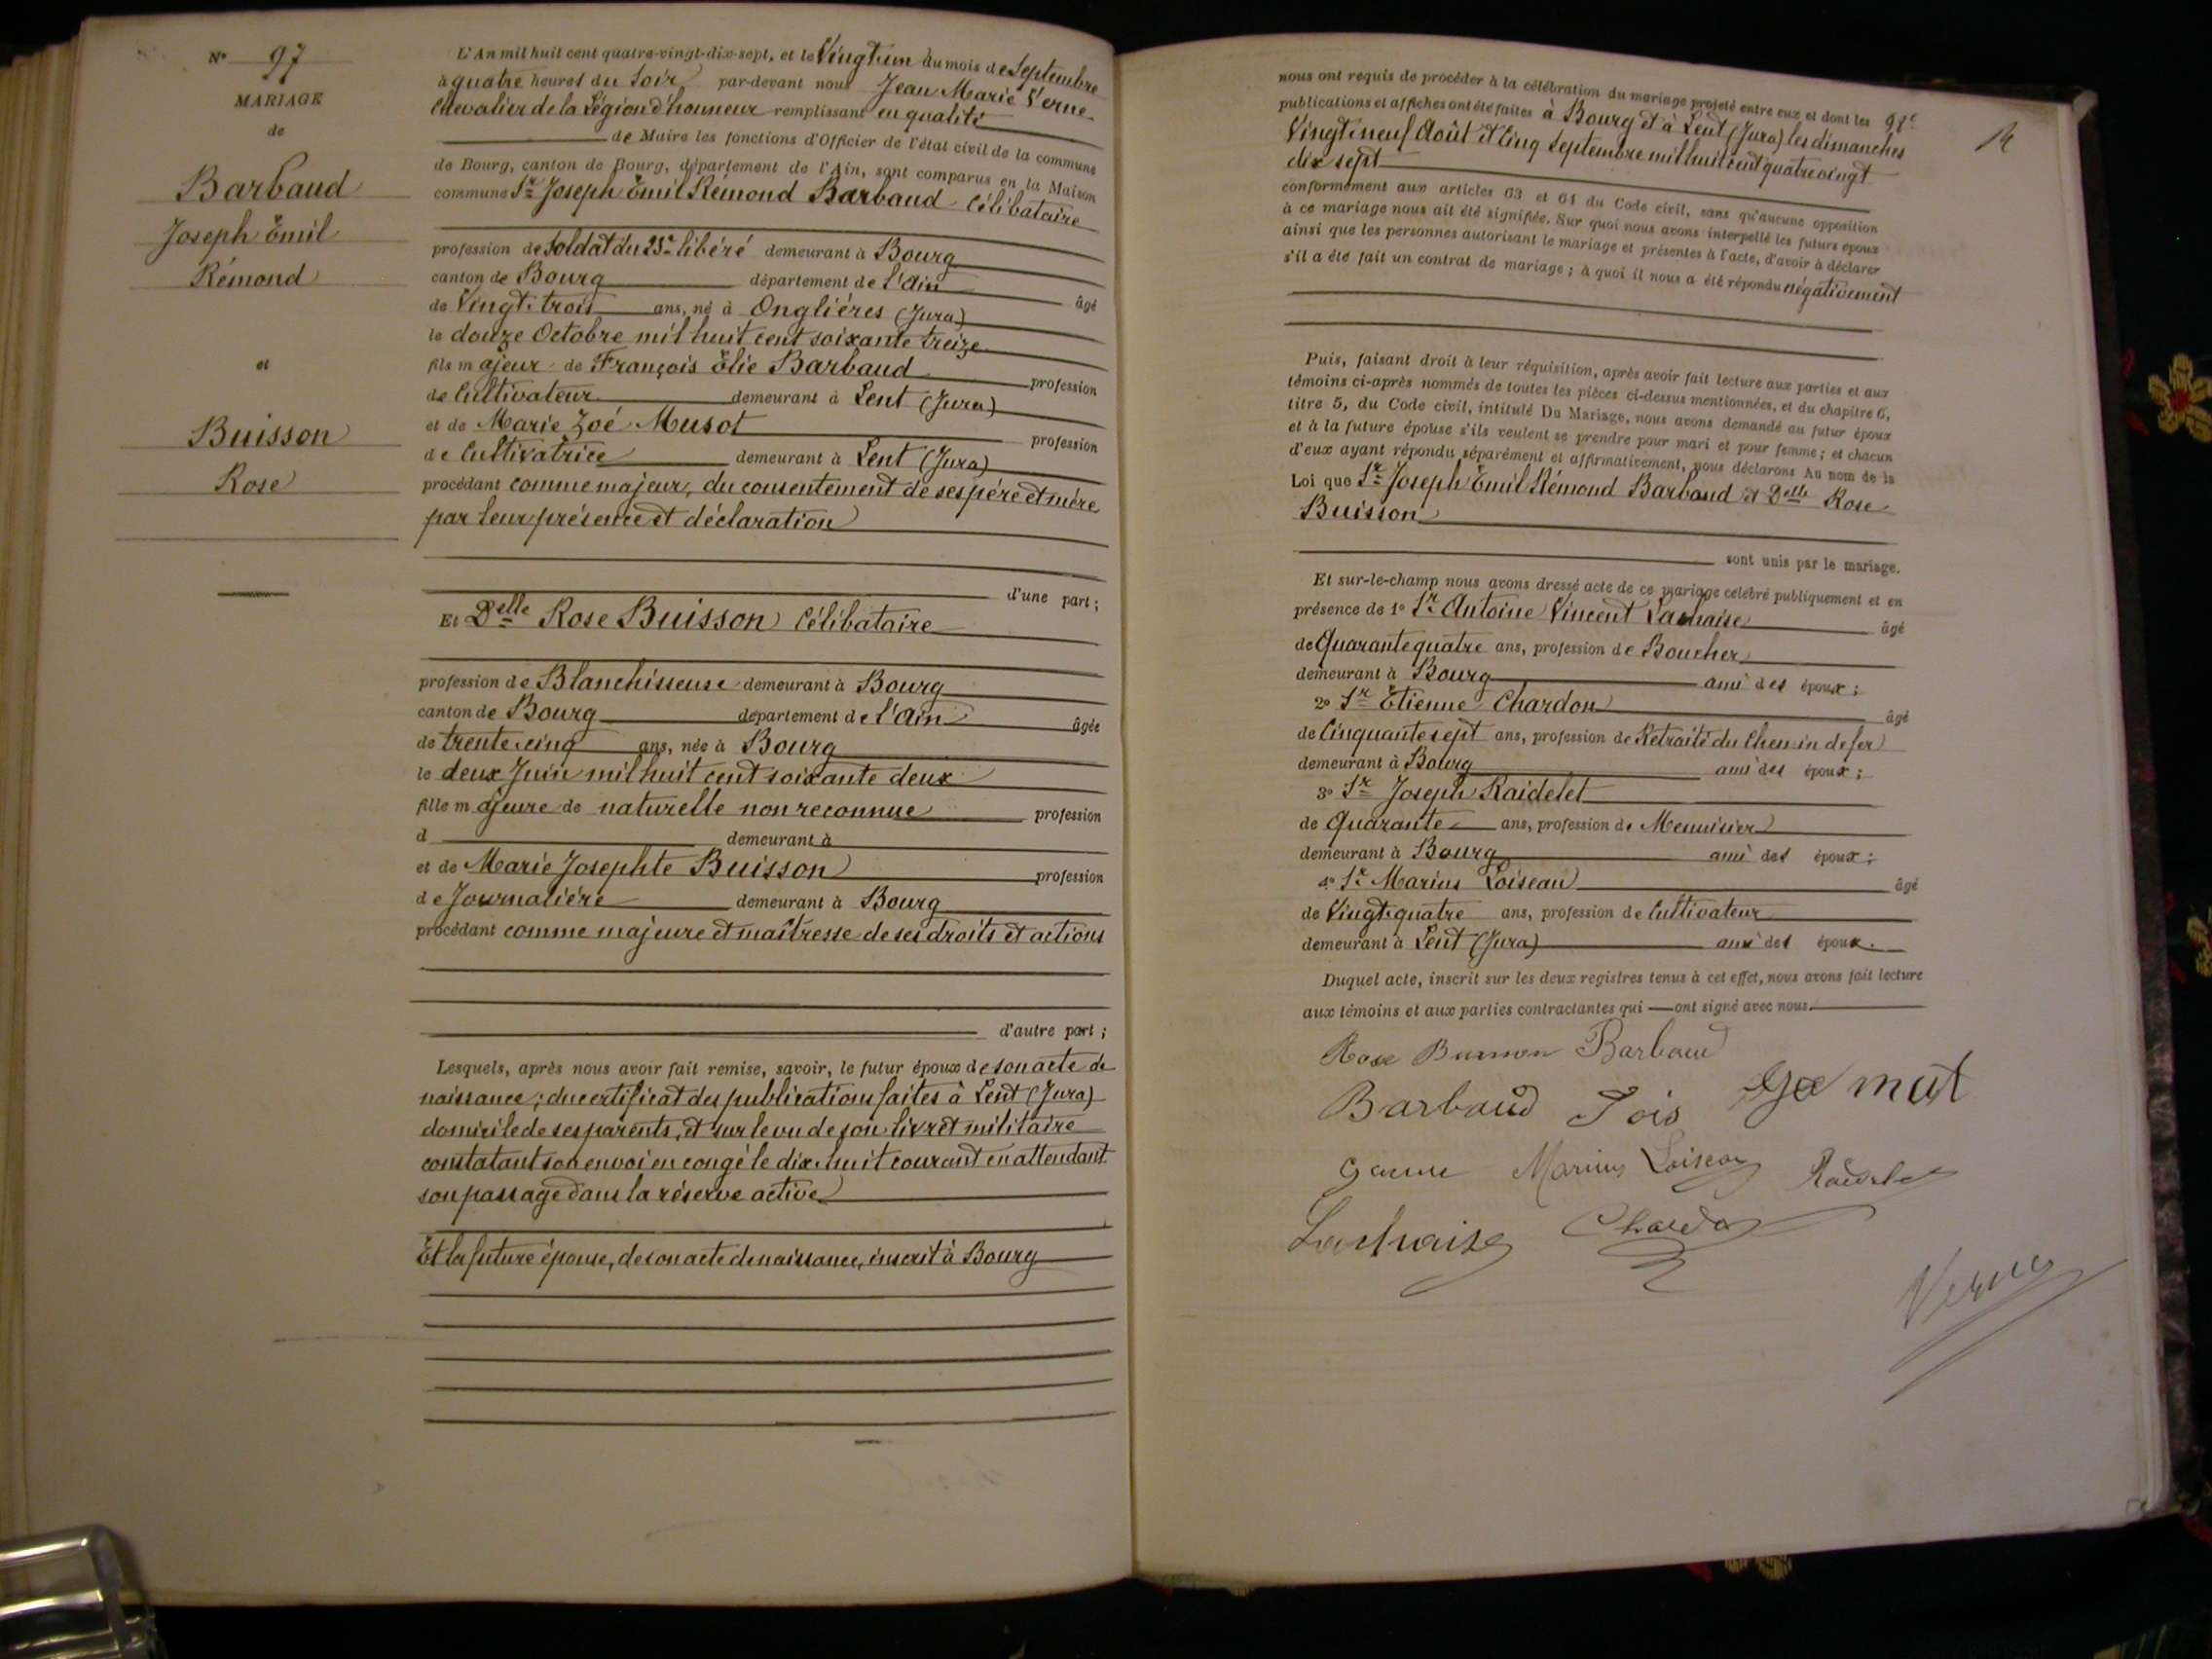 N° 97
MARIAGE
de
Barbaud
Joseph Émil
Rémond
et
Buisson
Rose
L'An mil huit cent quatre-vingt-dix-sept, et le Vingt-un du mois de Septembre
à quatre heures du Soir par-devant nous Jean Marie Verne
Chevalier de la Légion d'honneur remplissant en qualité
de Maire les fonctions d'Officier de l'état civil de la commune
de Bourg, canton de Bourg, département de l'Ain, sont comparus en la Maison
commune Sr Joseph Émil Rémond Barbaud Célibataire
profession de Soldat du 23e libéré demeurant à Bourg
canton de Bourg département de l'Ain âgé
de Vingt-trois ans, né à Onglières (Jura)
le douze Octobre mil huit cent soixante treize
fils majeur de François Élie Barbaud profession
de Cultivateur demeurant à Lent (Jura)
et de Marie Zoé Musot profession
de Cultivatrice demeurant à Lent (Jura)
procédant comme majeur, du consentement de ses père et mère
par leur présence et déclaration
d'une part ;
Et Delle Rose Buisson Célibataire
profession de Blanchisseuse demeurant à Bourg
canton de Bourg département de l'Ain âgée
de trente-cinq ans, née à Bourg
le deux Juin mil huit cent soixante deux
fille majeure de naturelle non reconnue profession
d demeurant à
et de Marie Josephte Buisson profession
de Journalière demeurant à Bourg
procédant comme majeure et maîtresse de ses droits et actions
d'autre part ;
Lesquels, après nous avoir fait remise, savoir, le futur époux de son acte de
naissance ; du certificat des publications faites à Lent (Jura)
domicile de ses parents, et sur le vu de son livret militaire
constatant son envoi en congé le dix-huit courant en attendant
son passage dans la réserve active
Et la future épouse, de son acte de naissance, inscrit à Bourg
nous ont requis de procéder à la célébration du mariage projeté entre eux et dont les
publications et affiches ont été faites à Bourg et à Lent (Jura) les dimanches
Vingt-neuf Août et Cinq Septembre mil huit cent quatre vingt
dix sept
conformément aux articles 63 et 64 du Code civil, sans qu'aucune opposition
à ce mariage nous ait été signifiée. Sur quoi nous avons interpellé les futurs époux
ainsi que les personnes autorisant le mariage et présentes à l'acte, d'avoir à déclarer
s'il a été fait un contrat de mariage ; à quoi il nous a été répondu négativement
Puis, faisant droit à leur réquisition, après avoir fait lecture aux parties et aux
témoins ci-après nommés de toutes les pièces ci-dessus mentionnées, et du chapitre 6,
titre 5, du Code civil, intitulé Du Mariage, nous avons demandé au futur époux
et à la future épouse s'ils veulent se prendre pour mari et pour femme ; et chacun
d'eux ayant répondu séparément et affirmativement, nous déclarons Au nom de la
Loi que Sr Joseph Émil Rémond Barbaud et Delle Rose
Buisson
sont unis par le mariage.
Et sur-le-champ nous avons dressé acte de ce mariage célébré publiquement et en
présence de 1° Sr Antoine Vincent Lachaise âgé
de Quarante quatre ans, profession de Boucher
demeurant à Bourg ami des époux ;
2° Sr Étienne Chardon âgé
de Cinquante sept ans, profession de Retraité du Chemin de fer
demeurant à Bourg ami des époux ;
3° Sr Joseph Raidelet
de Quarante ans, profession de Menuisier
demeurant à Bourg ami des époux ;
4° Sr Marius Loiseau âgé
de Vingt-quatre ans, profession de Cultivateur
demeurant à Lent (Jura) ami des époux.
Duquel acte, inscrit sur les deux registres tenus à cet effet, nous avons fait lecture
aux témoins et aux parties contractantes qui ont signé avec nous.
Rose Buisson Barbaud
Barbaud
Marius Loiseau Raidelet
Lachaise Chardon
Verne